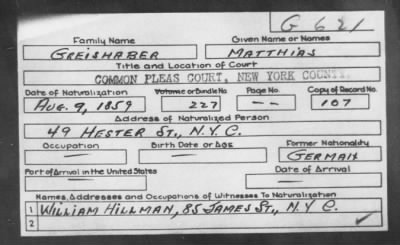 G 621
Family Name Given Name or Names
GREISHABER MATTHIAS
Title and Location of Court
COMMON PLEAS COURT, NEW YORK COUNTY.
Date of Naturalization Volume or Bundle No. Page No. Copy of Record No.
AUG. 9, 1859 227 -- 107
Address of Naturalized Person
49 HESTER ST., N.Y.C.
Occupation Birth Date or Age Former Nationality
— — GERMAN
Port of Arrival in the United States Date of Arrival
— —
Names, Addresses and Occupations of Witnesses To Naturalization
1 WILLIAM HILLMAN, 85 JAMES ST., N.Y.C.
2